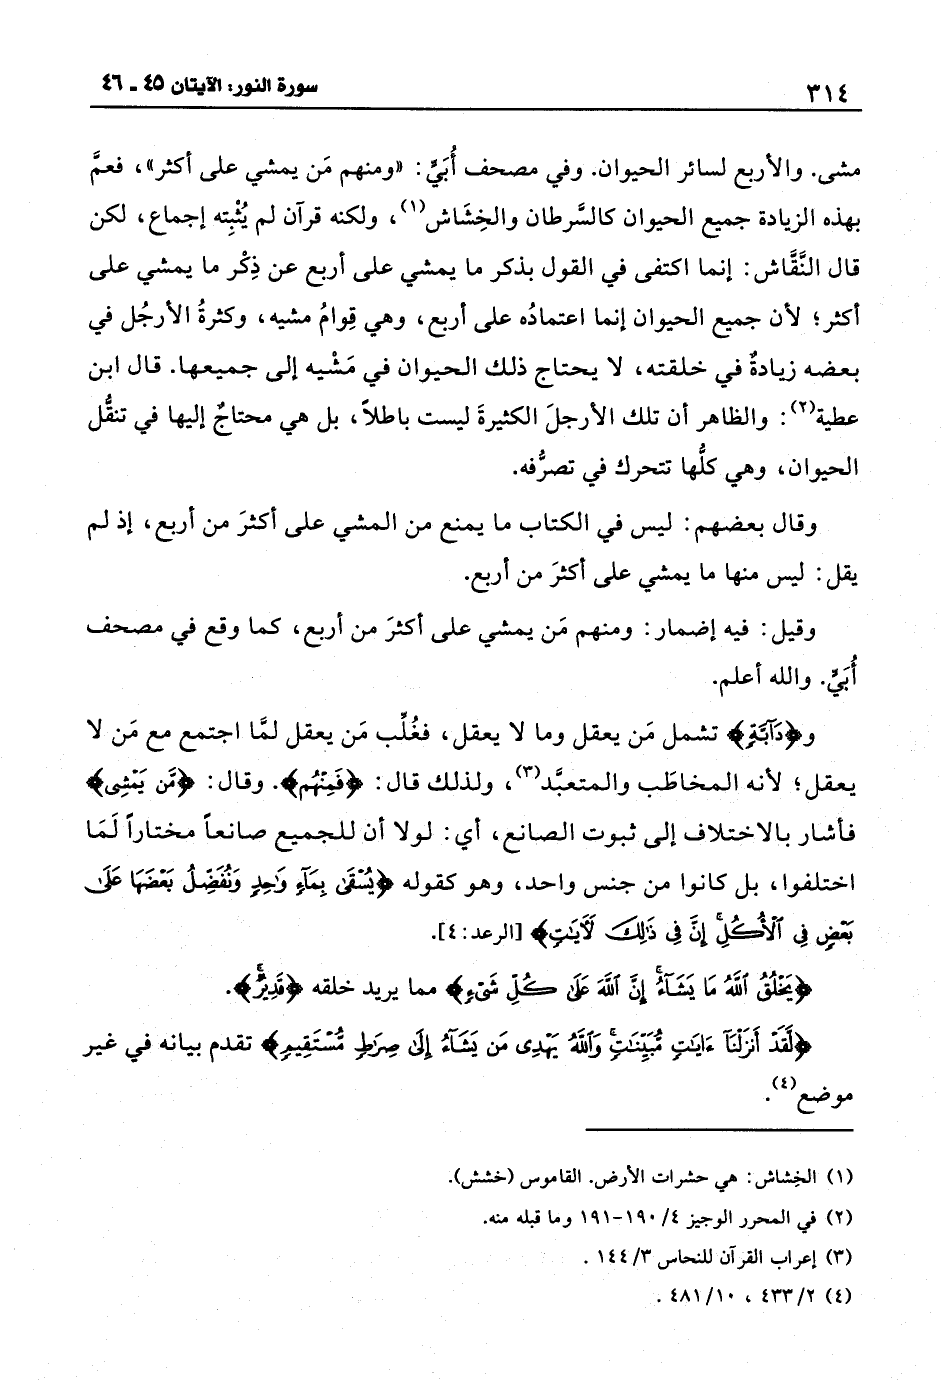 ٣١٤
سورة النور: الآيتان ٤٥ ـ ٤٦
مشى. والأربع لسائر الحيوان. وفي مصحف أُبَيٍّ: «ومنهم مَن يمشي على أكثر»، فعمَّ
بهذه الزيادة جميع الحيوان كالسَّرطان والخِشَاش(١)، ولكنه قرآن لم يُثْبِته إجماع، لكن
قال النَّقَّاش: إنما اكتفى في القول بذكر ما يمشي على أربع عن ذِكْر ما يمشي على
أكثر؛ لأن جميع الحيوان إنما اعتمادُه على أربع، وهي قِوامُ مشيه، وكثرةُ الأرجُل في
بعضه زيادةٌ في خلقته، لا يحتاج ذلك الحيوان في مَشْيه إلى جميعها. قال ابن
عطية(٢): والظاهر أن تلك الأرجلَ الكثيرةَ ليست باطلاً، بل هي محتاجٌ إليها في تنقُّل
الحيوان، وهي كلُّها تتحرك في تصرُّفه.
وقال بعضهم: ليس في الكتاب ما يمنع من المشي على أكثرَ من أربع، إذ لم
يقل: ليس منها ما يمشي على أكثرَ من أربع.
وقيل: فيه إضمار: ومنهم مَن يمشي على أكثرَ من أربع، كما وقع في مصحف
أُبَيٍّ. والله أعلم.
و﴿دَآبَّةٍ﴾ تشمل مَن يعقل وما لا يعقل، فغُلِّب مَن يعقل لمَّا اجتمع مع مَن لا
يعقل؛ لأنه المخاطَب والمتعبَّد(٣)، ولذلك قال: ﴿فَمِنْهُم﴾. وقال: ﴿مَّن يَمْشِى﴾
فأشار بالاختلاف إلى ثبوت الصانع، أي: لولا أن للجميع صانعاً مختاراً لَمَا
اختلفوا، بل كانوا من جنس واحد، وهو كقوله ﴿يُسْقَىٰ بِمَآءٍ وَٰحِدٍ وَنُفَضِّلُ بَعْضَهَا عَلَىٰ
بَعْضٍ فِى ٱلْأُكُلِ ۚ إِنَّ فِى ذَٰلِكَ لَآيَٰتٍ﴾ [الرعد: ٤].
﴿يَخْلُقُ ٱللَّهُ مَا يَشَآءُ ۚ إِنَّ ٱللَّهَ عَلَىٰ كُلِّ شَىْءٍ﴾ مما يريد خلقه ﴿قَدِيرٌ ۚ﴾.
﴿لَّقَدْ أَنزَلْنَآ ءَايَٰتٍ مُّبَيِّنَٰتٍ ۚ وَٱللَّهُ يَهْدِى مَن يَشَآءُ إِلَىٰ صِرَٰطٍ مُّسْتَقِيمٍ﴾ تقدم بيانه في غير
موضع(٤).
(١) الخِشاش: هي حشرات الأرض. القاموس (خشش).
(٢) في المحرر الوجيز ٤/ ١٩٠-١٩١ وما قبله منه.
(٣) إعراب القرآن للنحاس ٣/ ١٤٤ .
(٤) ٢/ ٤٣٣ ، ١٠/ ٤٨١ .